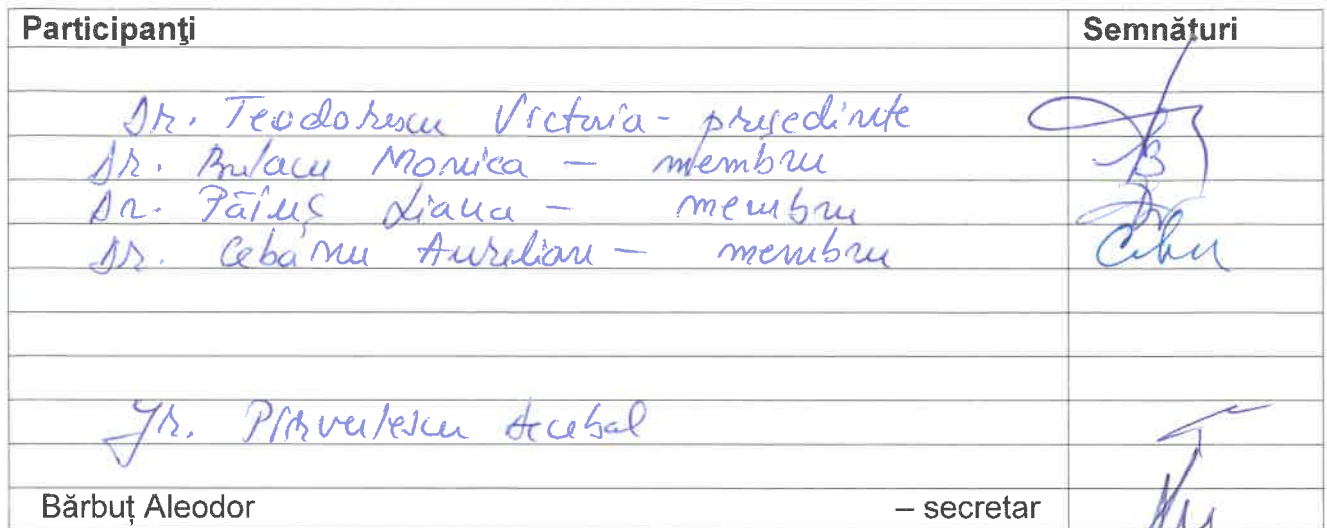 Participanţi Semnături
Dr. Teodorescu Victoria - președinte
Dr. Bulacu Monica — membru
Dr. Păiuș Liana — membru
Dr. Cebanu Aurelian — membru
Jr. Pîrvulescu
Bărbuț Aleodor – secretar